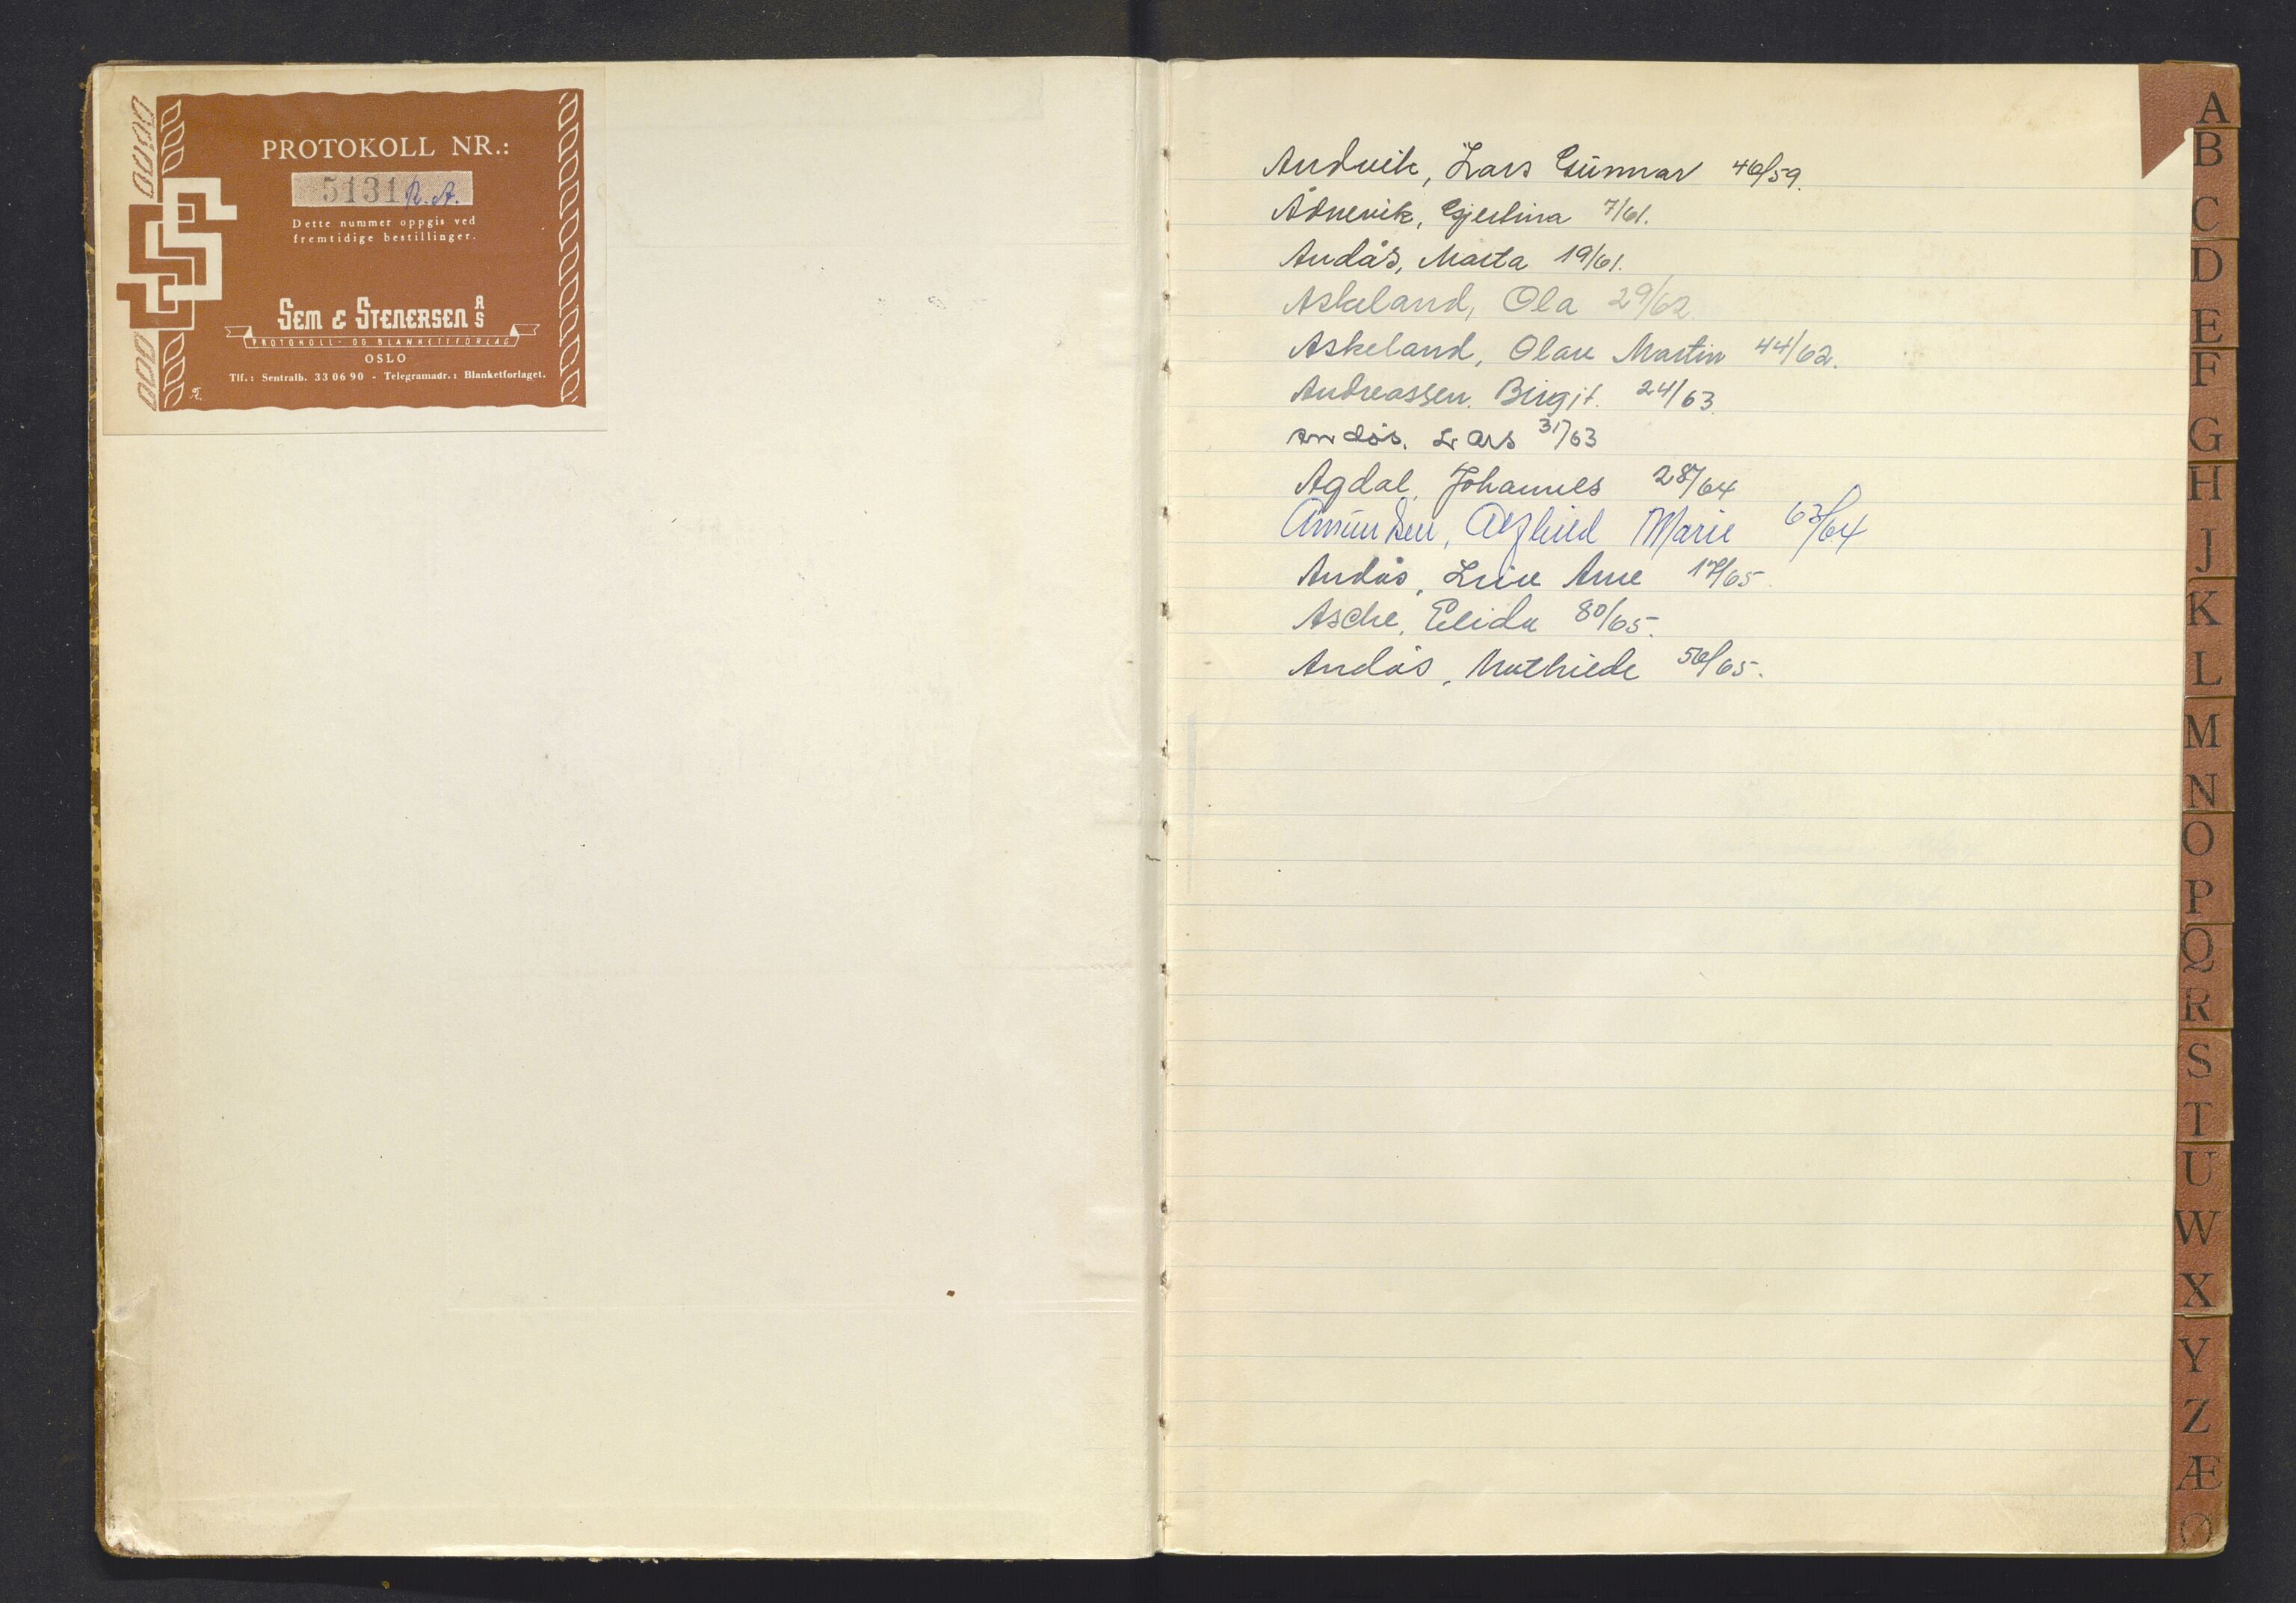 PROTOKOLL NR.:
5131 R. A.
Dette nummer oppgis ved
fremtidige bestillinger.
SEM & STENERSEN A/S
PROTOKOLL- OG BLANKETTFORLAG
OSLO
Tlf.: Sentralb. 33 06 90 - Telegramadr.: Blanketforlaget.
Andvik, Lars Gunnar 46/59.
Ådnevik, Gjertina 7/61.
Andås, Marta 19/61.
Askeland, Ola 29/62.
Askeland, Olav Martin 44/62.
Andreassen. Birgit. 24/63.
Andås. Lars 31/63
Agdal, Johannes 28/64
Amundsen, Alfhild Marie 63/64
Andås, Arne 17/65
Asche, Elida 80/65.
Andås, Mathilde 56/65.
A
B
C
D
E
F
G
H
J
K
L
M
N
O
P
Q
R
S
T
U
W
X
Y
Z
Æ
Ø